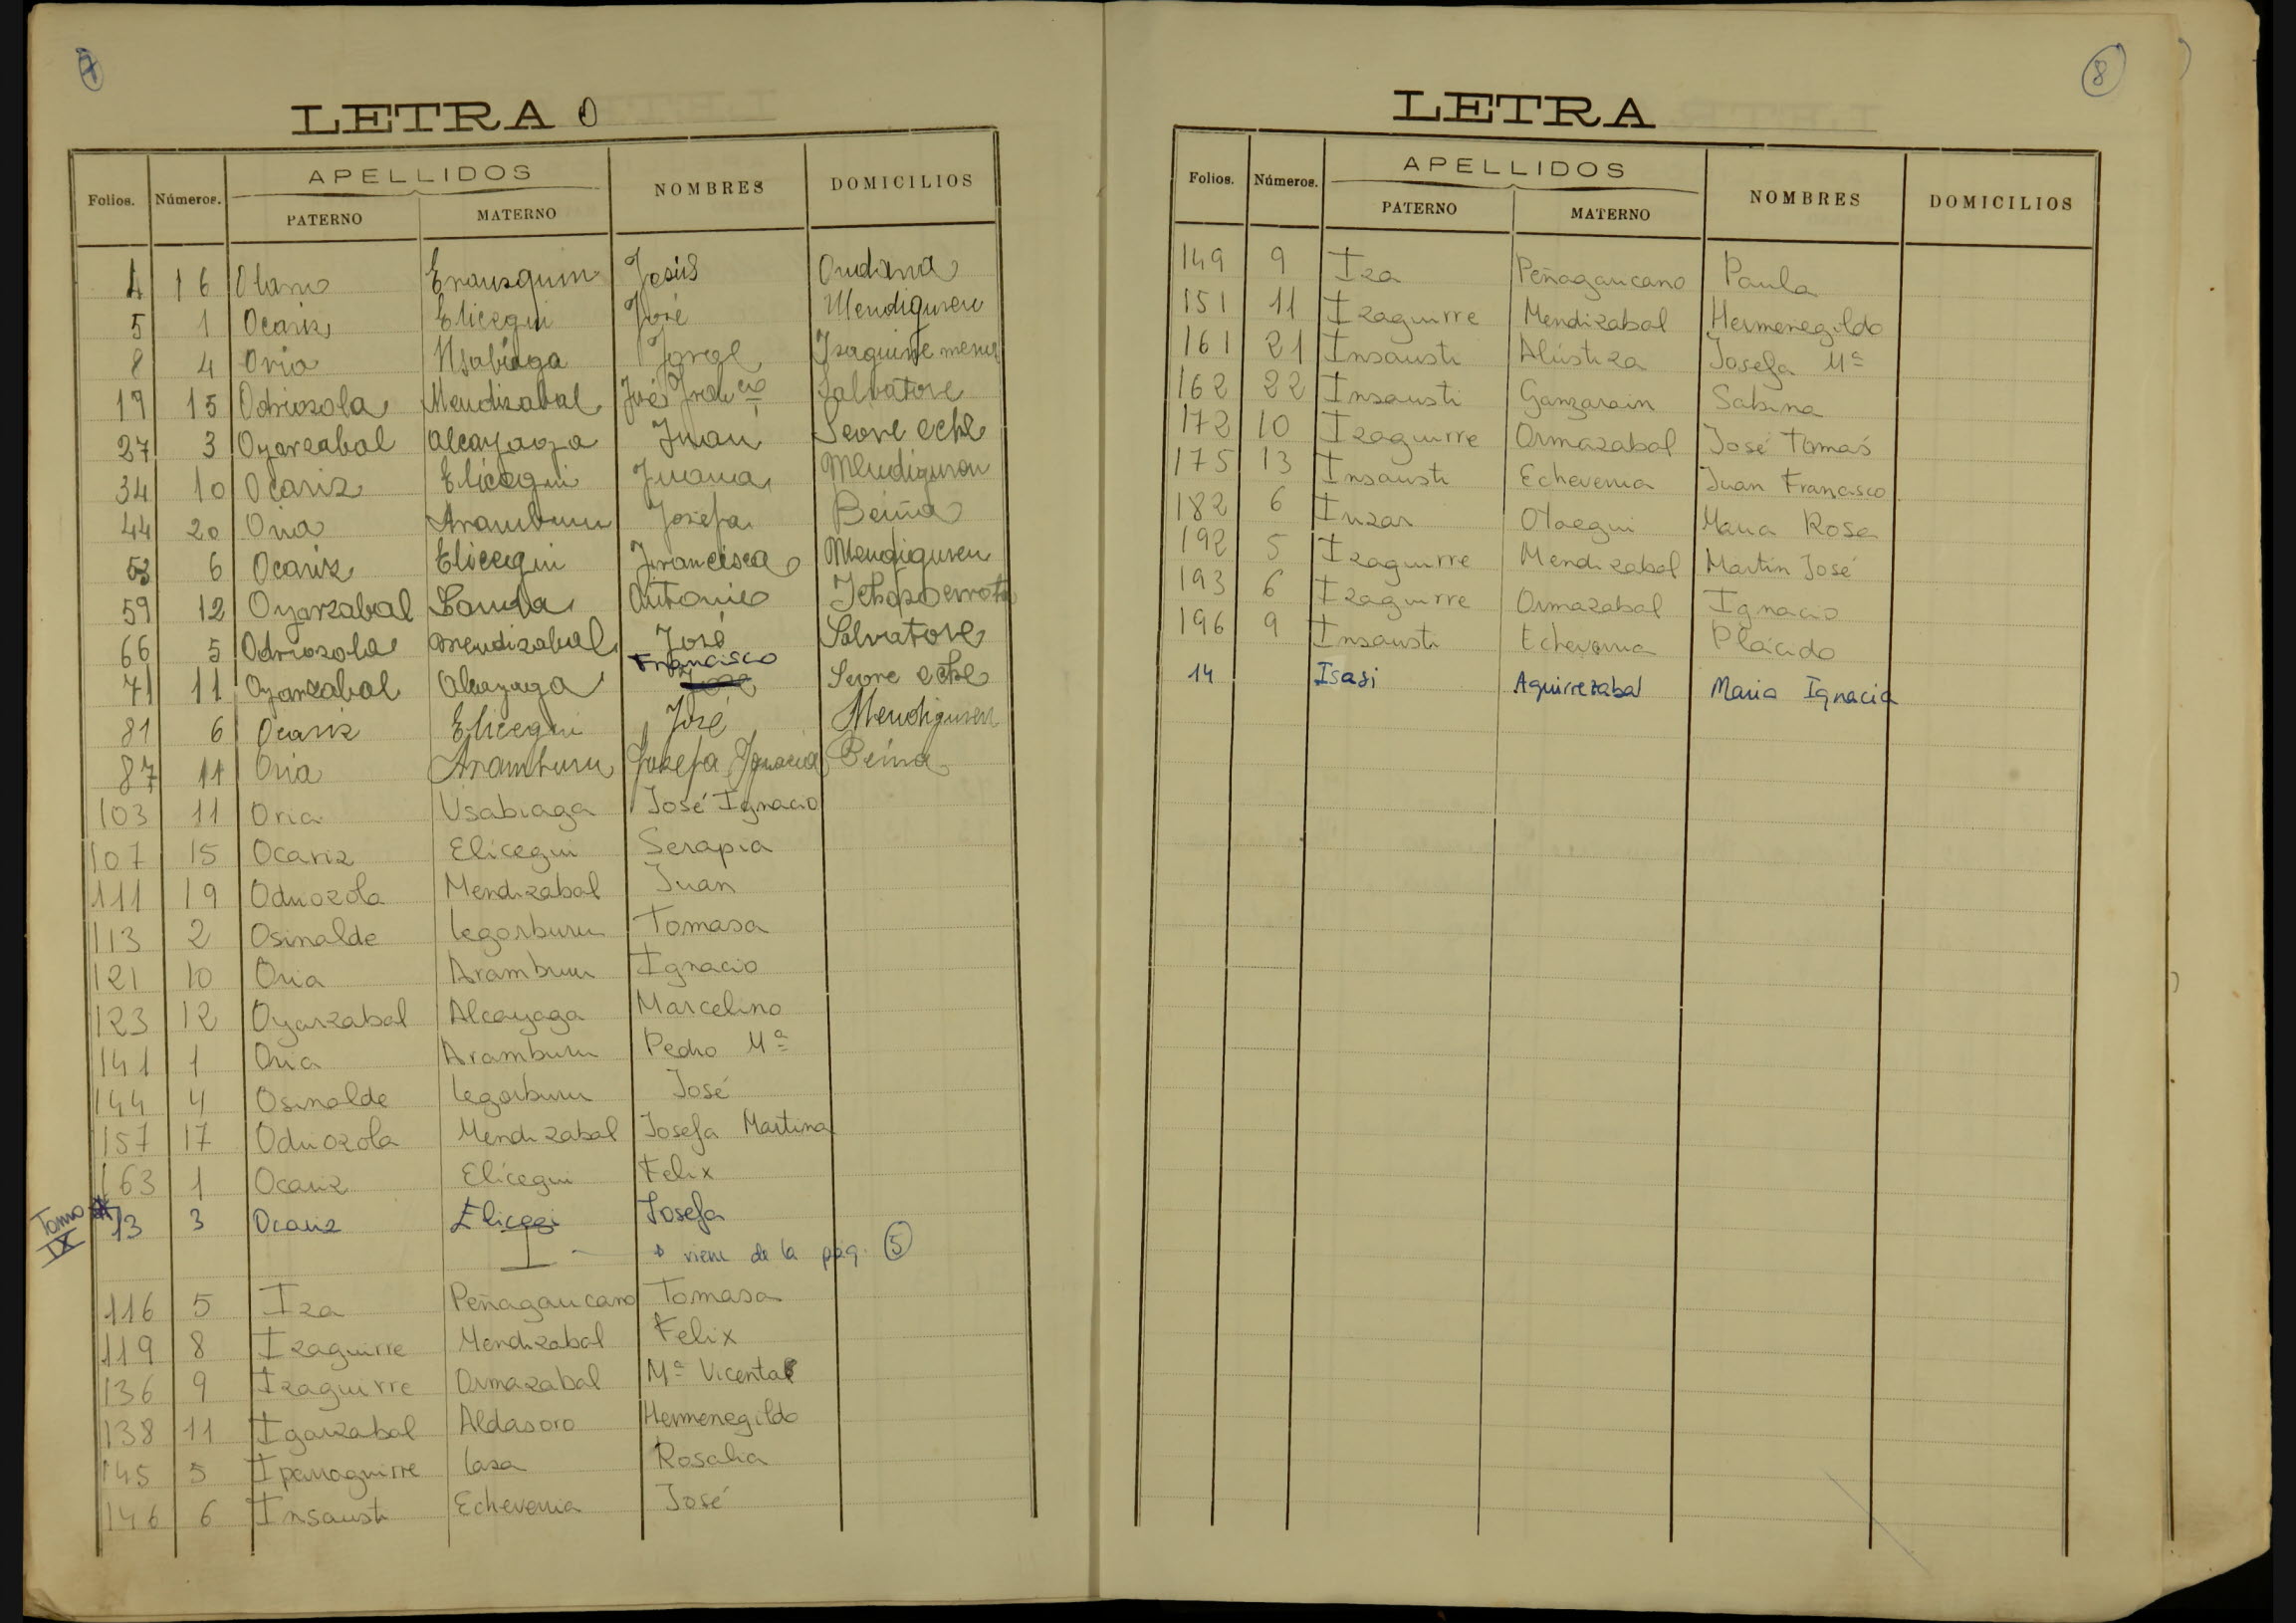 7
LETRA O
Folios. Números. APELLIDOS NOMBRES DOMICILIOS
PATERNO MATERNO
4 16 Otamo Erausquin Jesús Oudana
5 1 Ocariz Elicegui José Mendiguren
8 4 Oria Usabiaga Jorge Izaguirre menor
19 15 Odriozola Mendizabal José Franco Salvatore
27 3 Oyarzabal Alcayaga Juan Seore eche
34 10 Ocariz Elicegui Juana Mendiguren
44 20 Oria Aramburu Josefa Beiña
53 6 Ocariz Elicegui Francisca Mendiguren
59 12 Oyarzabal Landa Antonio
66 5 Odriozola Mendizabal José Salvatore
71 11 Oyarzabal Alcayaga Francisco Seore eche
81 6 Ocariz Elicegui José Mendiguren
87 11 Oria Aramburu Josefa Ignacia Beina
103 11 Oria Usabiaga José Ignacio
107 15 Ocariz Elicegui Serapia
111 19 Odriozola Mendizabal Juan
113 2 Osinalde Legorburu Tomasa
121 10 Oria Aramburu Ignacio
123 12 Oyarzabal Alcayaga Marcelino
141 1 Oria Aramburu Pedro Mª
144 4 Osinalde Legorburu José
157 17 Odriozola Mendizabal Josefa Martina
163 1 Ocariz Elicegui Felix
Tomo IX 13 3 Ocariz Elicegi Josefa
I - * viene de la pág. 5
116 5 Iza Peñagaricano Tomasa
119 8 Izaguirre Mendizabal Felix
136 9 Izaguirre Ormazabal Mª Vicenta
138 11 Igarzabal Aldasoro Hermenegildo
145 5 Iparraguirre Lasa Rosalia
146 6 Insausti Echeverria José
8
LETRA
Folios. Números. APELLIDOS NOMBRES DOMICILIOS
PATERNO MATERNO
149 9 Iza Peñagaricano Paula
151 11 Izaguirre Mendizabal Hermenegildo
161 21 Insausti Alústiza Josefa Mª
162 22 Insausti Ganzarain Sabina
172 10 Izaguirre Ormazabal José Tomás
175 13 Insausti Echeverria Juan Francisco
182 6 Inzar Otaegui Maria Rosa
192 5 Izaguirre Mendizabal Martin José
193 6 Izaguirre Ormazabal Ignacio
196 9 Insausti Echeverria Plácido
14 Isasi Aguirrezabal Maria Ignacia